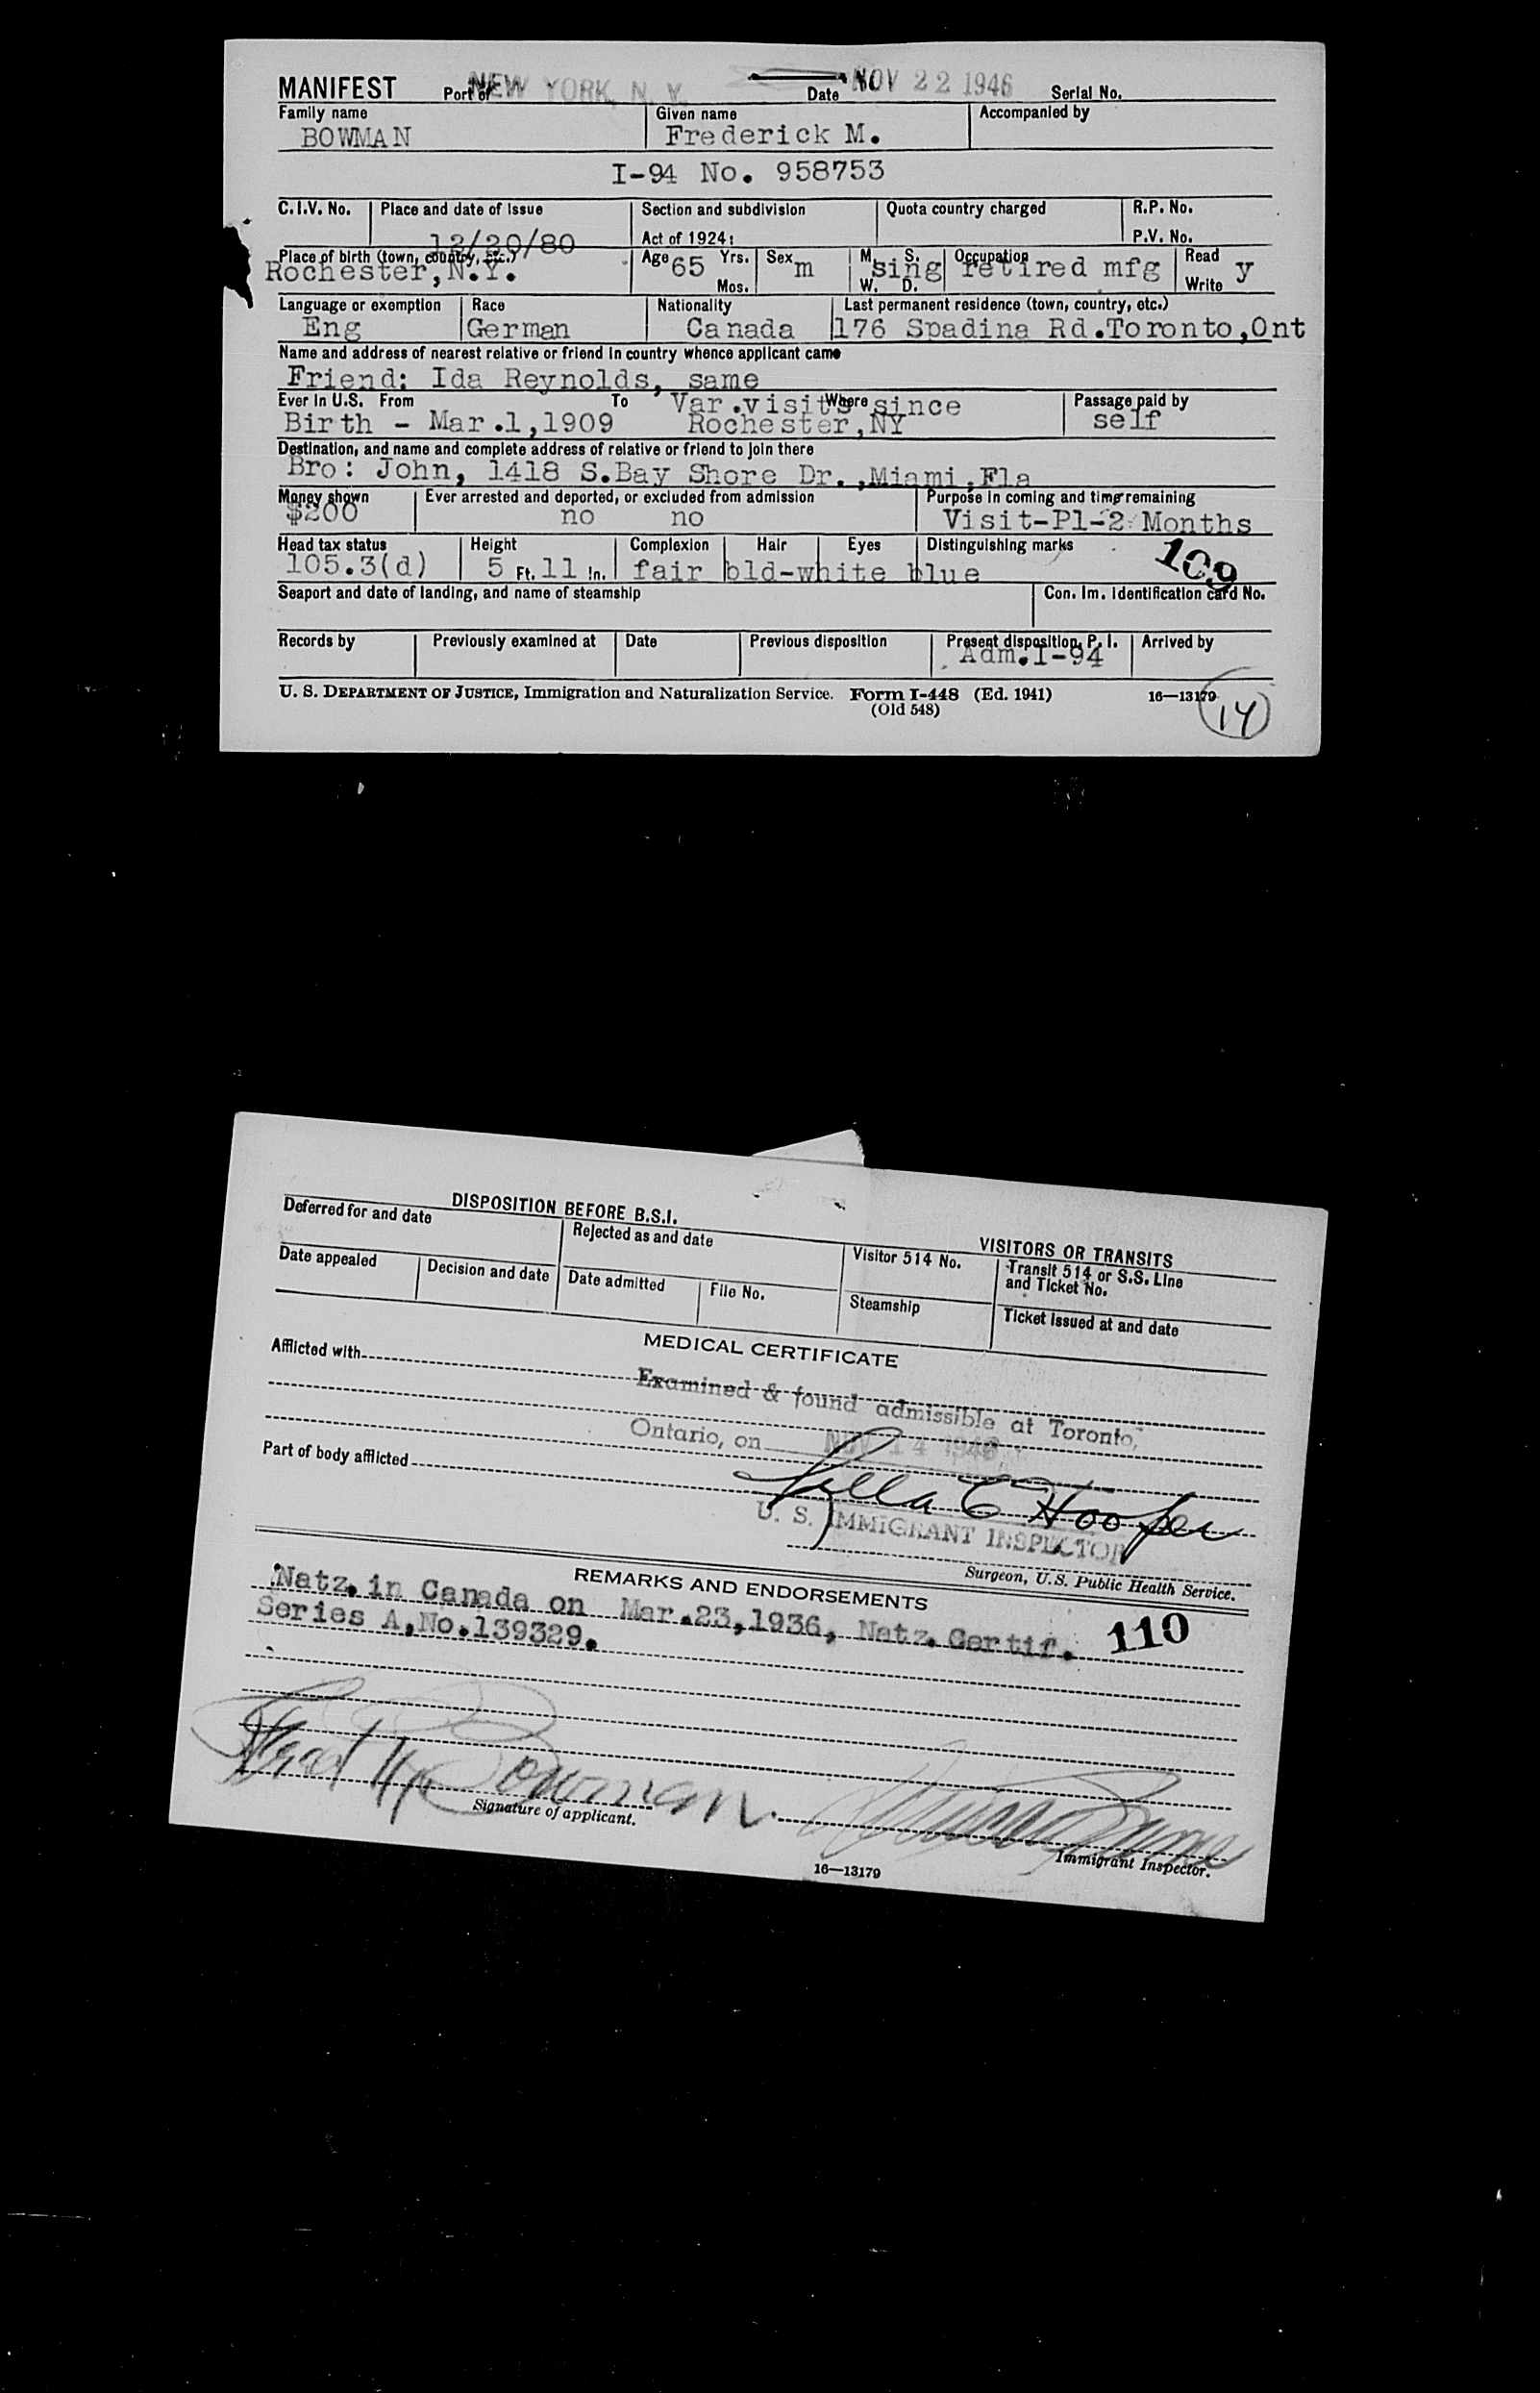 MANIFEST Port of NEW YORK, N. Y. Date NOV 22 1946 Serial No.
Family name Given name Accompanied by
BOWMAN Frederick M.
I-94 No. 958753
C.I.V. No. Place and date of issue Section and subdivision Quota country charged R.P. No.
12/20/80 Act of 1924: P.V. No.
Place of birth (town, country, etc.) Age 65 Yrs. Sex M. S. Occupation Read
Rochester,N.Y. Mos. m W. D. sing retired mfg Write y
Language or exemption Race Nationality Last permanent residence (town, country, etc.)
Eng German Canada 176 Spadina Rd.Toronto,Ont
Name and address of nearest relative or friend in country whence applicant came
Friend: Ida Reynolds, same
Ever in U.S. From To Var.visits Where since Passage paid by
Birth - Mar.1,1909 Rochester,NY self
Destination, and name and complete address of relative or friend to join there
Bro: John, 1418 S.Bay Shore Dr.,Miami,Fla
Money shown Ever arrested and deported, or excluded from admission Purpose in coming and time remaining
$200 no no Visit-Pl-2 Months
Head tax status Height Complexion Hair Eyes Distinguishing marks 109
105.3(d) 5 Ft. 11 In. fair bld-white blue
Seaport and date of landing, and name of steamship Con. Im. Identification card No.
Records by Previously examined at Date Previous disposition Present disposition, P. I. Arrived by
Adm.I-94
U. S. DEPARTMENT OF JUSTICE, Immigration and Naturalization Service. Form I-448 (Ed. 1941) 16—13179
(Old 548) 14
DISPOSITION BEFORE B.S.I. VISITORS OR TRANSITS
Deferred for and date Rejected as and date Visitor 514 No. Transit 514 or S.S. Line and Ticket No.
Date appealed Decision and date Date admitted File No. Steamship Ticket issued at and date
MEDICAL CERTIFICATE
Afflicted with
Examined & found admissible at Toronto,
Ontario, on NOV 14 1946
Part of body afflicted
C Hooper
U. S. IMMIGRANT INSPECTOR
Surgeon, U.S. Public Health Service.
REMARKS AND ENDORSEMENTS
Natz. in Canada on Mar.23,1936, Natz. Certif. 110
Series A,No.139329.
Fred M Bowman
Signature of applicant.
Immigrant Inspector.
16—13179